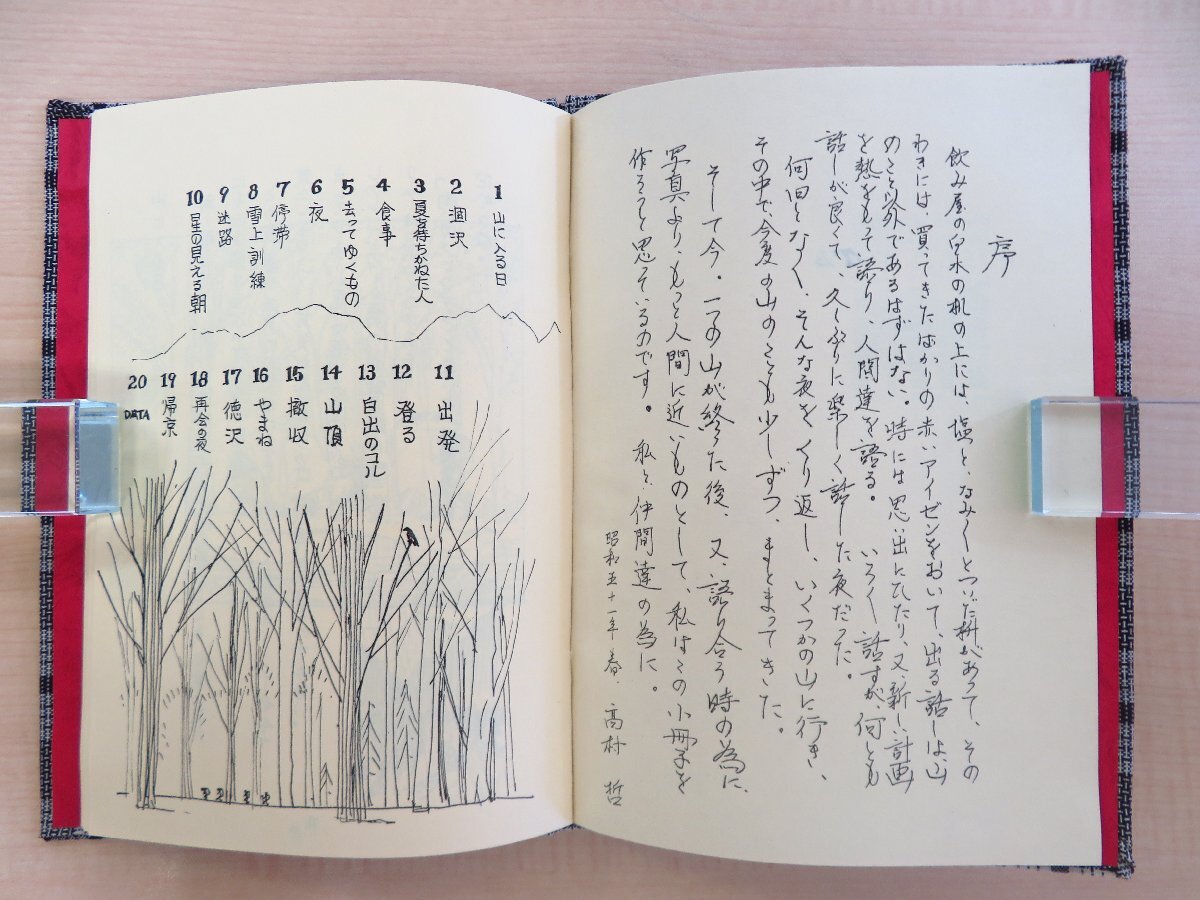 序
飲み屋の白木の机の上には、塩と、なみ〱とついだ枡があって、その
わきには、買ってきたばかりの赤いアイゼンをおいて、出る話しは、山
のこと以外であるはずはない。時には思い出にひたり、又、新しい計画
を熱をもって語り、人間達を語る。 いろ〱話すが、何とも
話しが良くて、久しぶりに楽しく話した夜だった。
何回となく、そんな夜をくり返し、いくつかの山に行き、
その中で、今度の山のことも少しずつ、まとまってきた。
そして今。一つの山が終った後、又、語り合う時の為に、
写真より、もっと人間に近いものとして、私はこの小冊子を
作ろうと思っているのです。 私と仲間達の為に。
昭和五十一年春. 高村 哲
1 山に入る日
2 涸沢
3 夏を待ちかねた人
4 食事
5 去ってゆくもの
6 夜
7 停滞
8 雪上訓練
9 迷路
10 星の見える朝
11 出発
12 登る
13 白出のコル
14 山頂
15 撤収
16 やまね
17 徳沢
18 再会の夜
19 帰京
20 DATA